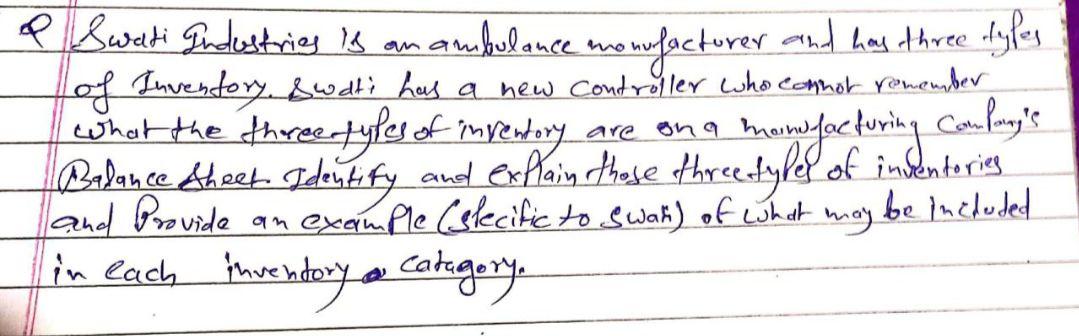 Q Swati Industries is an ambulance manufacturer and has three types
of Inventory. Swati has a new controller who cannot remember
what the three types of inventory are on a manufacturing Company's
Balance Sheet. Identify and explain those three types of inventories
and Provide an example (specific to swati) of what may be included
in each inventory catagory.